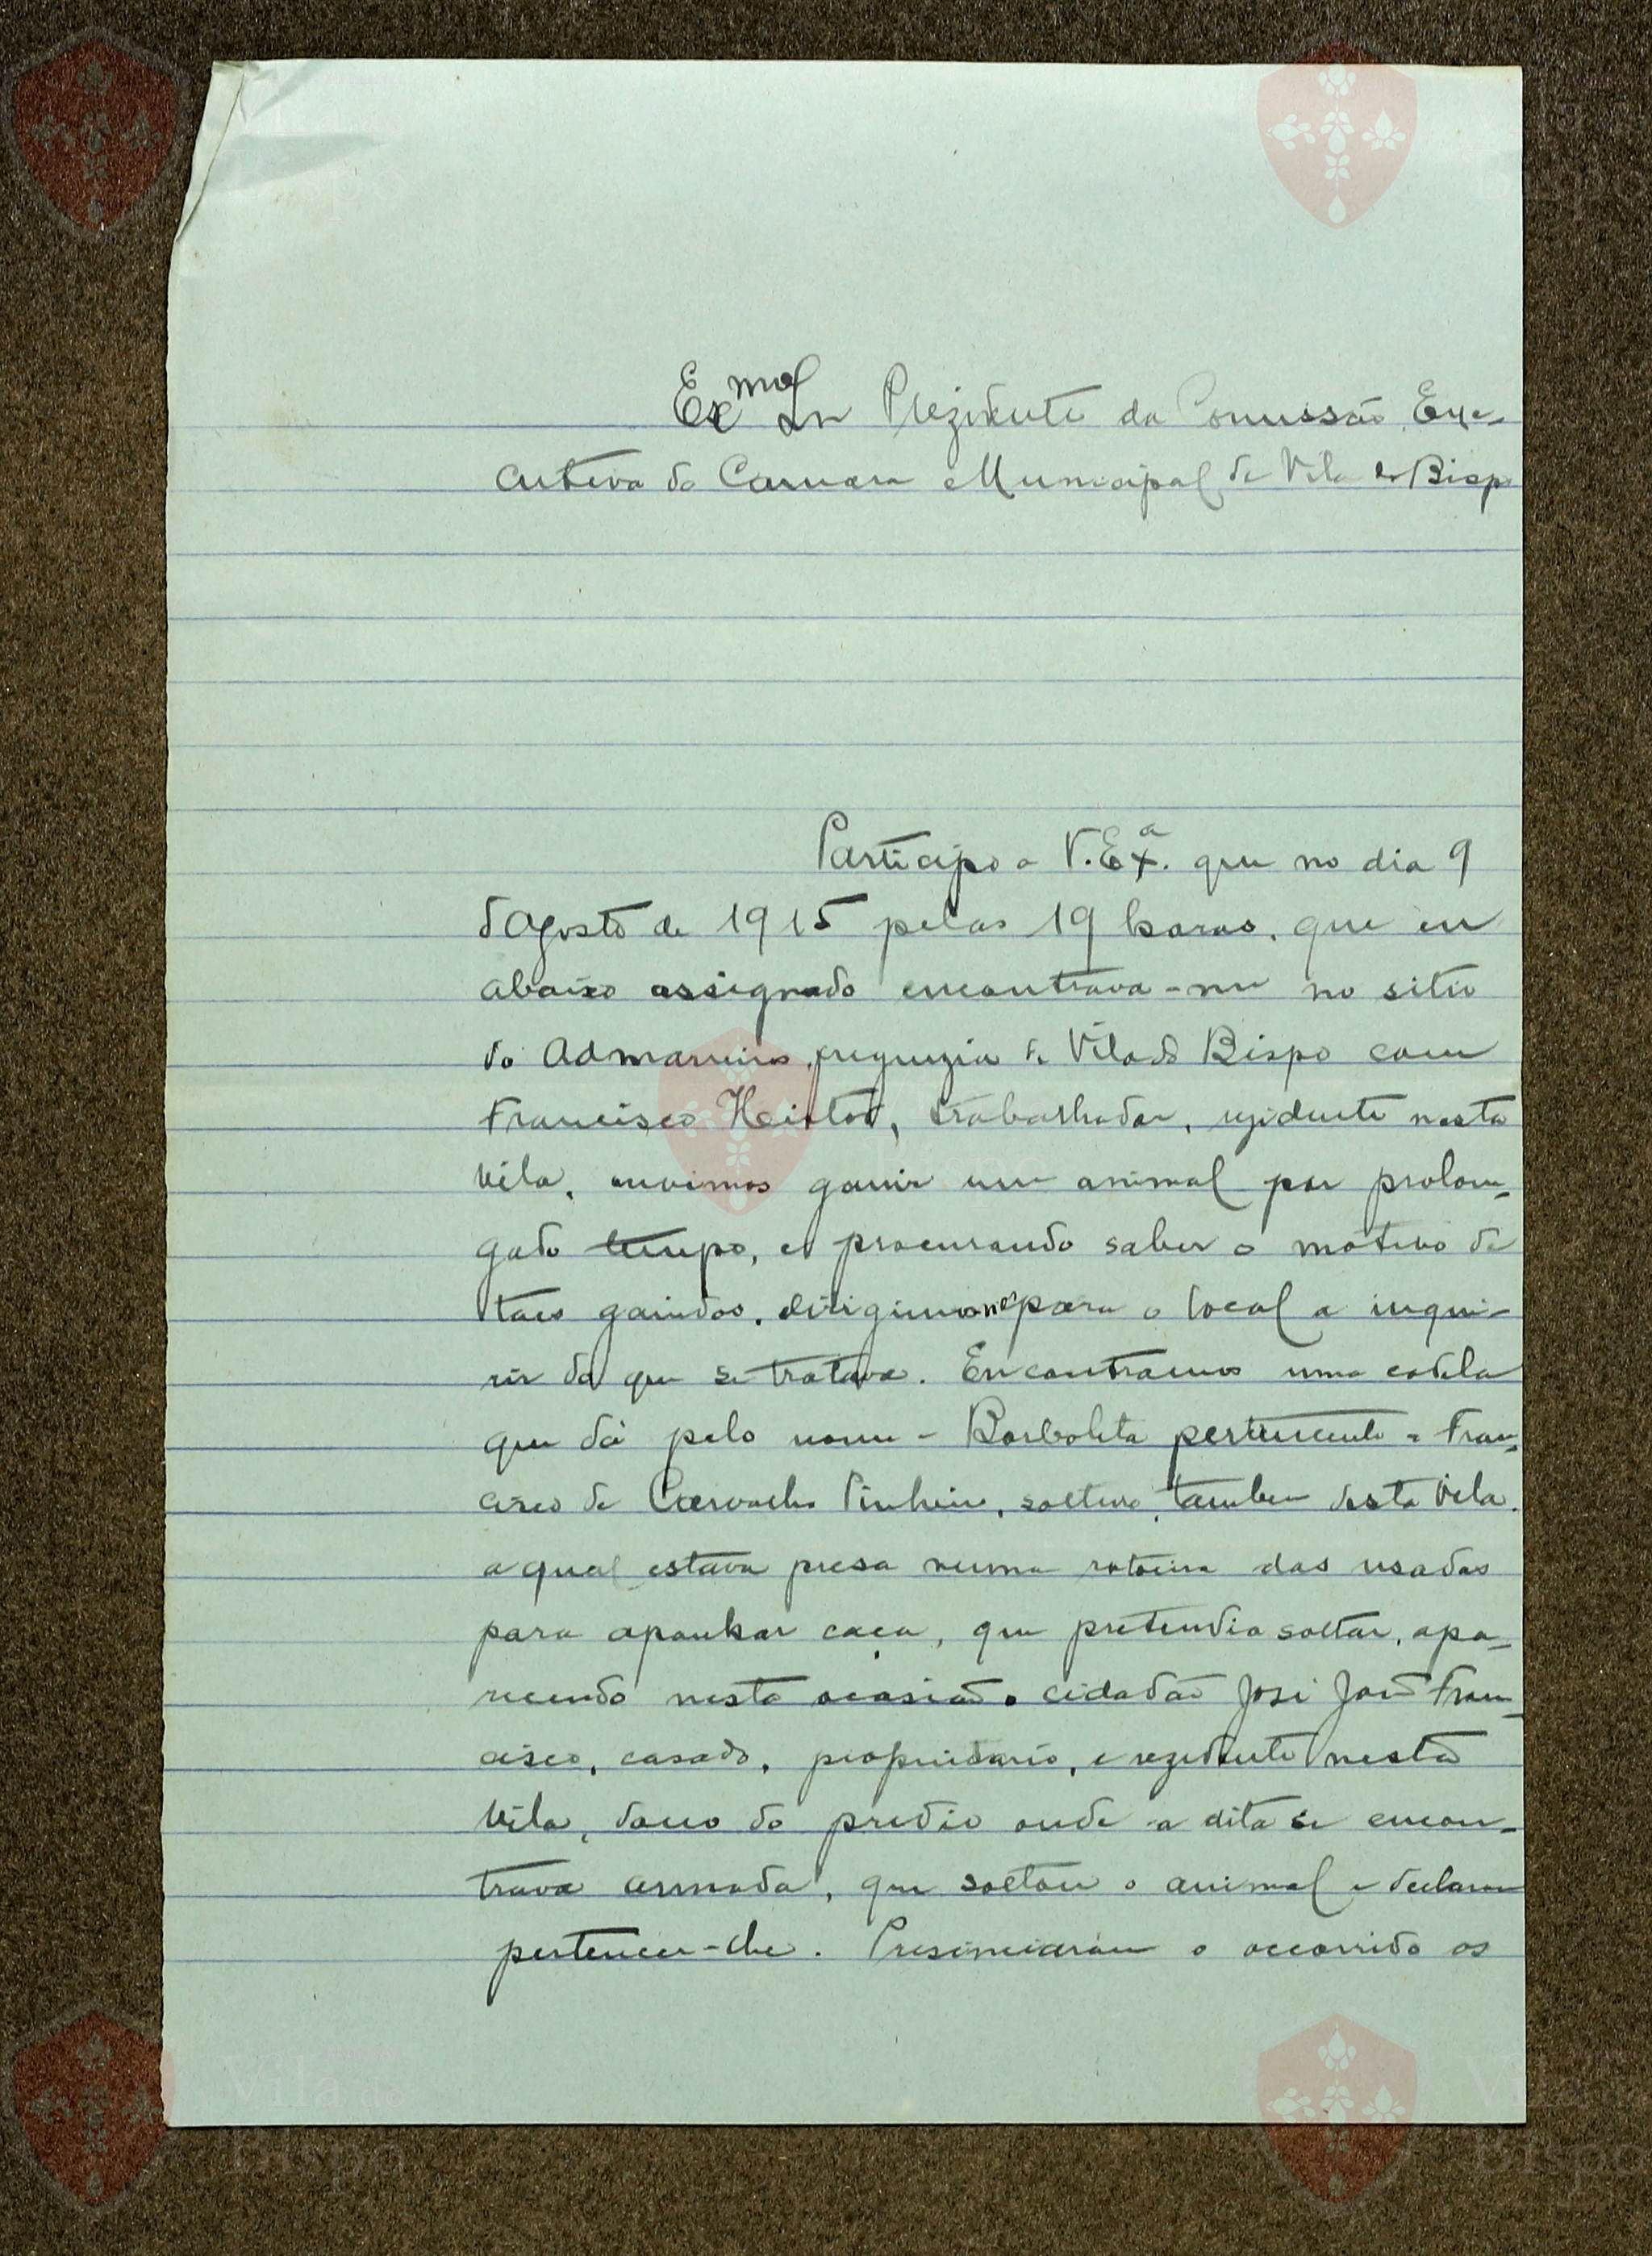 Exmo Snr Prezidente da Comissão Exe-
cutiva da Camara Municipal de Vila do Bispo
Participo a V. Exª. que no dia 9
d'Agosto de 1915 pelas 19 horas, que eu
abaixo assignado encontrava-me no sitio
do freguezia de Vila do Bispo com
Francisco Heitor, trabalhador, rezidente nesta
Vila, ouvimos ganir um animal por prolon-
gado tempo, e procurando saber o motivo de
taes ganidos, dirigimonos para o local a inqui-
rir do que se tratava. Encontramos uma cadela
que dá pelo nome - Borboleta pertencente a Fran-
cisco de Carvalho Pinheiro, solteiro, tambem desta Vila.
a qual estava presa numa ratoeira das usadas
para apanhar caça, que pretendia soltar, apa-
recendo nesta ocasião o cidadão José João Fran-
cisco, casado, propriétario, e rezidente nesta
Vila, dono do predio onde a dita se encon-
trava armada, que soltou o animal e declarou
pertencer-lhe. Presenciaram o occorrido os
Vila do
Bispo